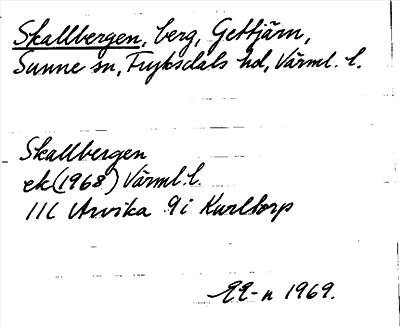 Skallbergen, berg, Gettjärn,
Sunne sn, Fryksdals hd, Värml. l.
Skallbergen
ek (1968) Värml. l.
11C Arvika 9i Kurltorp
-n 1969.